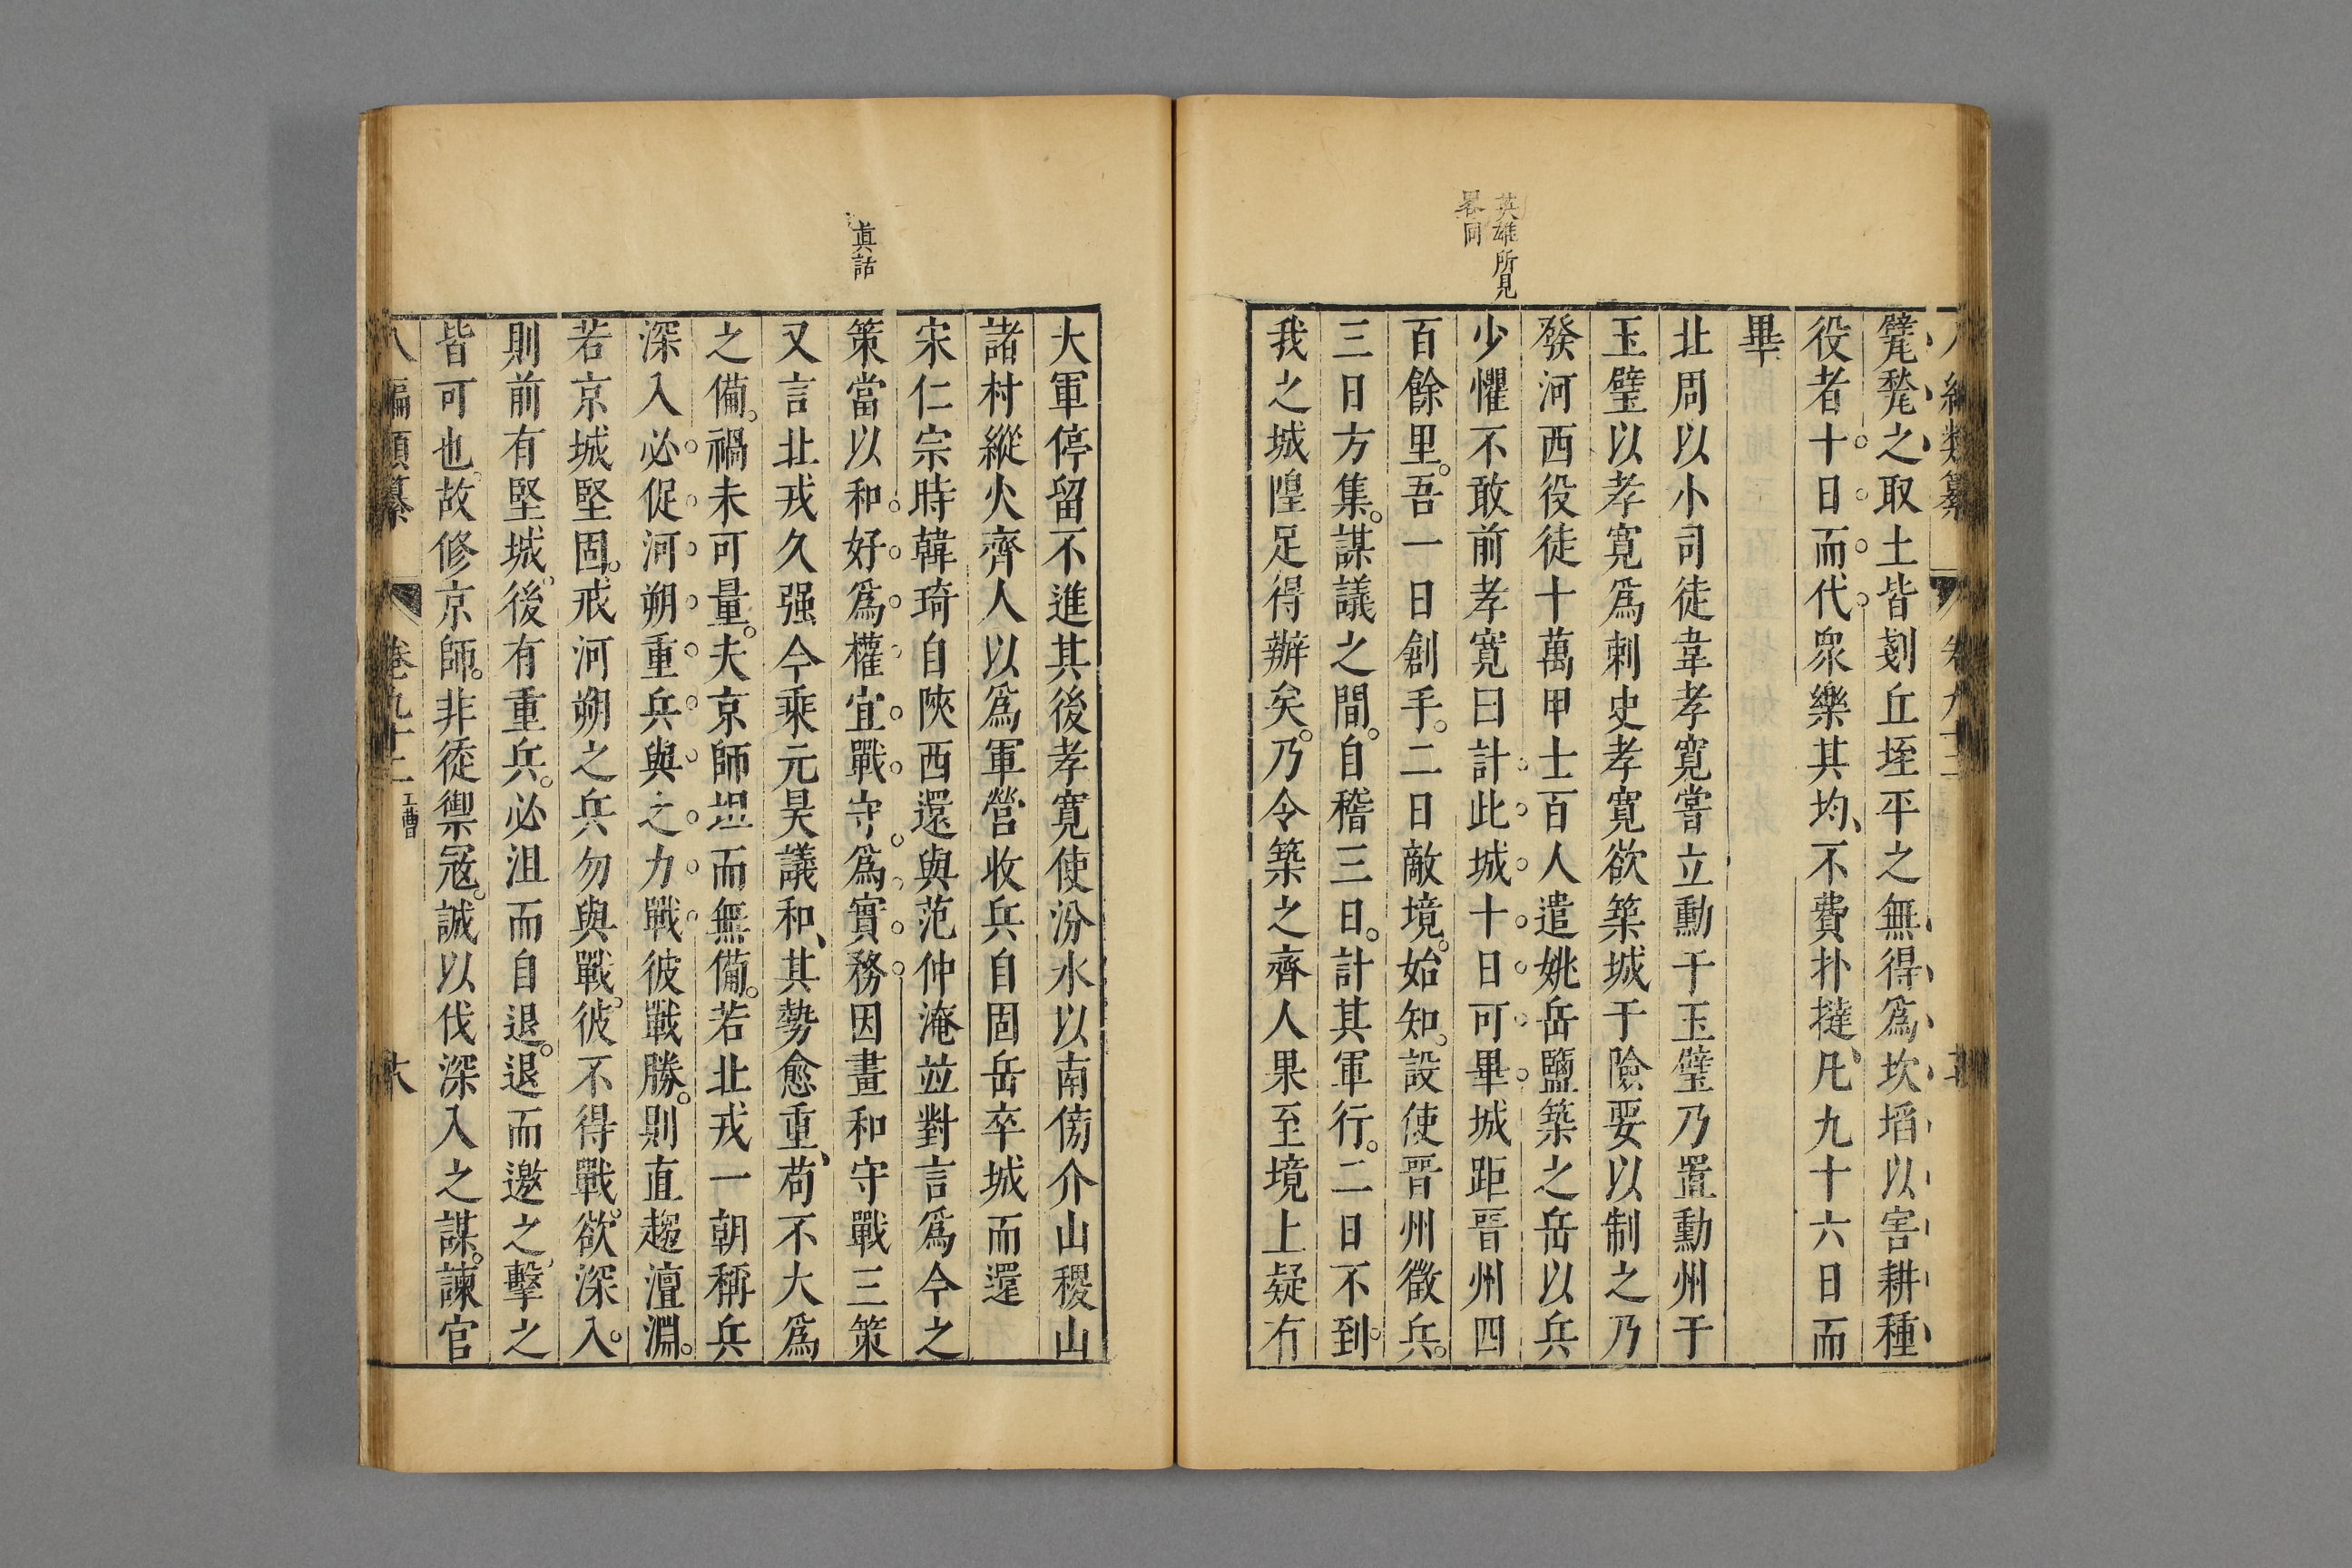 英雄所見
畧同
甓甃之取土皆剗丘垤平之無得爲坎埳以害耕種
役者十日而代衆樂其均不費扑撻凡九十六日而
畢
北周以小司徒韋孝寛嘗立勳于玉璧乃置勳州于
玉璧以孝寛爲刺史孝寛欲築城于險要以制之乃
發河西役徒十萬甲士百人遣姚岳鹽築之岳以兵
少懼不敢前孝寛曰計此城十日可畢城距晉州四
百餘里。吾一日創手。二日敵境。始知。設使晋州徵兵。
三日方集。謀議之間。自稽三日。計其軍行。二日不到。
我之城隍足得辦矣。乃令築之齊人果至境上疑有
眞詁
大軍停留不進其後孝寛使汾水以南傍介山稷山
諸村縱火齊人以爲軍營收兵自固岳卒城而還
宋仁宗時韓琦自陝西還與范仲淹並對言爲今之
策當以和好爲權宜戰守爲實務因畫和守戰三策
又言北戎久强今乘元昊議和、其勢愈重、苟不大爲
之備。禍未可量。夫京師坦而無備。若北戎一朝稱兵
深入必促河朔重兵與之力戰彼戰勝。則直趨澶淵。
若京城堅固。戒河朔之兵勿與戰。彼不得戰。欲深入。
則前有堅城。後有重兵。必沮而自退。退而邀之、擊之
皆可也。故修京師。非徒禦冦。誠以伐深入之謀。諫官
八編類纂 卷九十二 工曹 十六